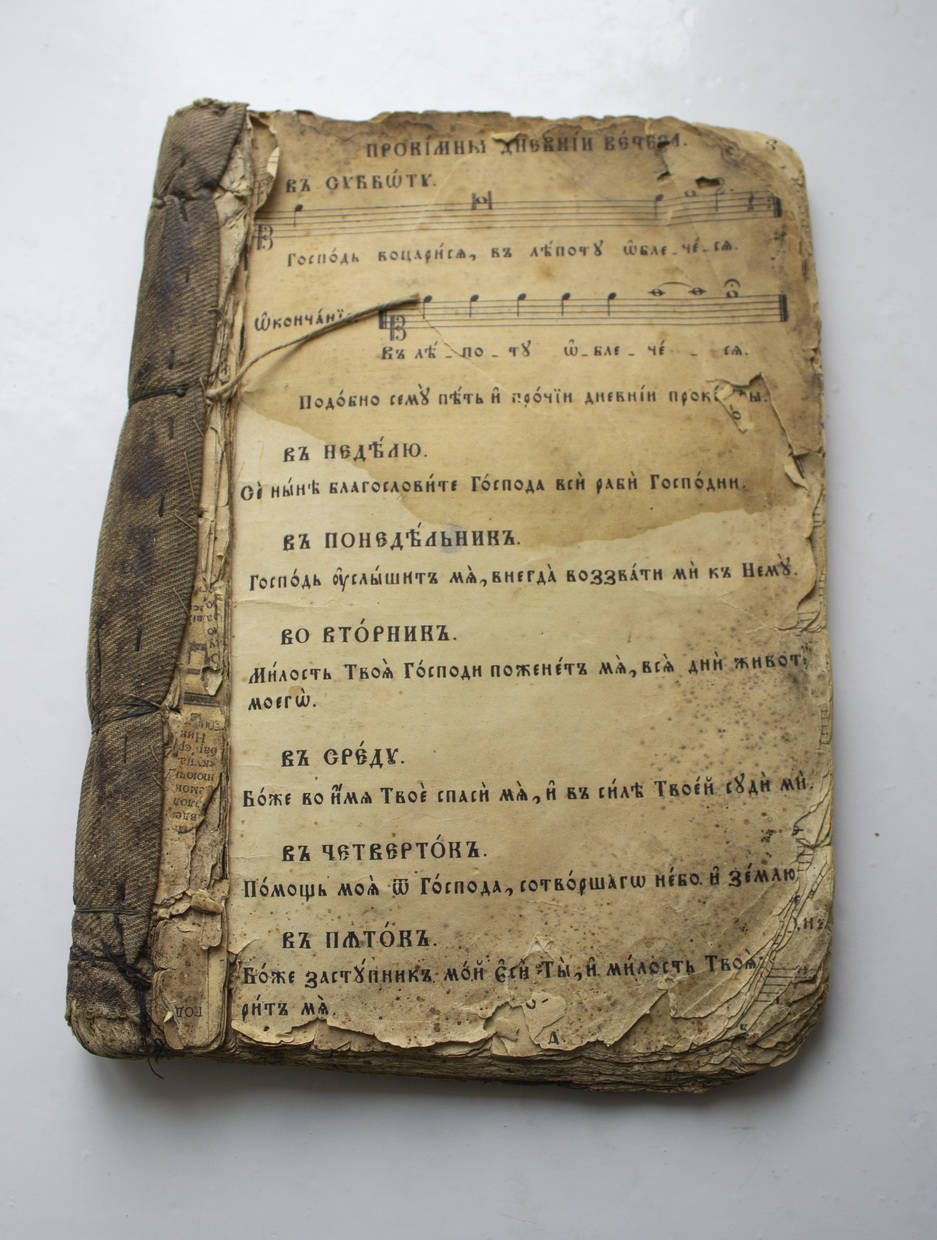 ПРОКІ́МНЫ ДНЕВНІИ ВЕ́ЧЕРА.
ВЪ СꙊББѠ́ТꙊ.
Госпо́дь воцари́сѧ, въ лѣ́потꙋ ѡ҆бле-че́-сѧ.
Ѡ҆конча́нїе
Въ лѣ́ - по - тꙋ ѡ҆ - бле - че́ - сѧ.
Подо́бно семꙋ̀ пѣ́ть и҆ про́чїи дневні́и
ВЪ НЕДѢ́ЛЮ.
Сѐ ны́нѣ благослови́те Го́спода всѝ рабѝ Госпо́дни.
ВЪ ПОНЕДѢ́ЛЬНИКЪ.
Госпо́дь ᲂу҆слы́шитъ мѧ̀, внегда̀ воззва́ти мѝ къ Немꙋ̀.
ВО ВТО́РНИКЪ.
Ми́лость Твоѧ̀ Го́споди пожене́тъ мѧ̀, всѧ̀ днѝ живот
моегѡ̀.
ВЪ СРЕ́ДꙊ.
Бо́же во и҆́мѧ Твоѐ спасѝ мѧ̀, и҆ въ си́лѣ Твое́й сꙋдѝ мѝ.
ВЪ ЧЕТВЕРТО́КЪ.
По́мощь моѧ̀ ѿ Го́спода, сотво́ршагѡ не́бо и҆ зе́млю
ВЪ ПѦТО́КЪ.
Бо́же застꙋ́пникъ мо́й є҆сѝ Ты̀, и҆ ми́лость Твоѧ̀
ри́тъ мѧ̀.